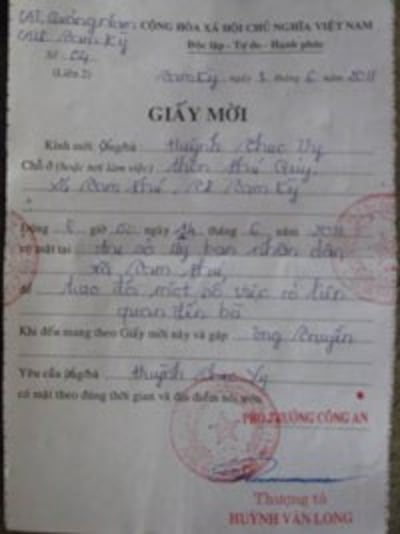 CAT. Quảng Nam CỘNG HÒA XÃ HỘI CHỦ NGHĨA VIỆT NAM
CATP. Tam Kỳ Độc lập - Tự do - Hạnh phúc
Số 04
(Liên 2) Tam Kỳ, ngày 3 tháng 6 năm 2011
GIẤY MỜI
Kính mời ông/bà Huỳnh Thục Vy
Chỗ ở (hoặc nơi làm việc) thôn Phú Quý,
xã Tam Phú, TP Tam Kỳ
Đúng 8 giờ 00 ngày 14 tháng 6 năm 2011
có mặt tại trụ sở ủy ban nhân dân
xã Tam Phú
để trao đổi một số việc có liên
quan đến bà
Khi đến mang theo Giấy mời này và gặp ông Truyền
Yêu cầu ông/bà Huỳnh Thục Vy
có mặt theo đúng thời gian và địa điểm nói trên.
PHÓ TRƯỞNG CÔNG AN
Thượng tá
HUỲNH VĂN LONG